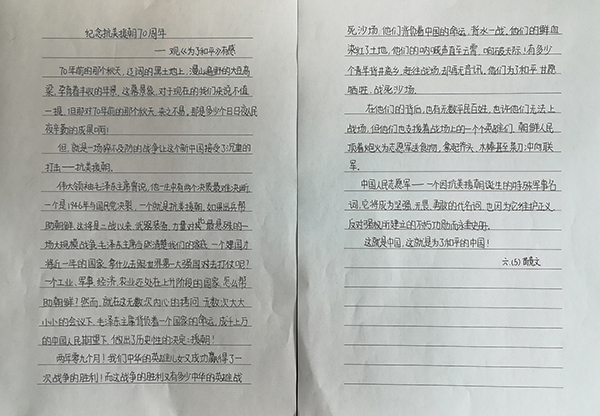 纪念抗美援朝70周年
——观《为了和平》有感
70年前的那个秋天，辽阔的黑土地上，漫山遍野的大豆高
粱，孕育着丰收的年景，这幕景象，对于现在的我们来说不值
一提，但那对70年前的那个秋天，来之不易，那是多少个日日夜夜民
夜辛勤的成果啊！
但，就是一场猝不及防的战争让这个新中国接受了沉重的
打击——抗美援朝。
伟大领袖毛泽东主席曾说，他一生中有两个决策最难决断
一个是1946年与国民党决裂，一个就是抗美援朝，如果出兵帮
助朝鲜，这将是二战以来，武器装备、力量对比最悬殊的一
场大规模战争，毛泽东主席当时清楚我们的底蕴，一个嬴国力
将近一年的国家，拿什么去跟世界第一大强国对击打仗呢？
一个工业、军事、经济、农业还处在上升阶段的国家，怎么帮
助朝鲜？然而，就在这无数次内心的拷问，无数次大大
小小的会议下，毛泽东主席背负着一个国家的命运，成千上万
的中国人民期望下，他做出了历史性的决定：援朝！
两年零九个月！我们中华的英雄儿女又成功赢得了一
次战争的胜利！而这战争的胜利又有多少中华的英雄战
死沙场，他们背负着中国的命运，背水一战，他们的鲜血
染红了土地，他们的呐喊声直至云霄，响破天际！有多少
个青年背井离乡，赶往战场，却再无音讯，他们为了和平，甘愿
牺牲，战死沙场。
在他们的背后，也有无数平民百姓，也许他们无法上
战场，但他们也支援着战场上的一个个英雄们，朝鲜人民
顶着炮火为志愿军送食物，拿起斧头、木棒甚至菜刀，冲向联
军。
中国人民志愿军——一个因抗美援朝诞生的特殊军事名
词，它将成为坚强、无畏、勇敢的代名词，也因为它维护正义、
反对强权所建立的不朽功勋而永垂史册。
这就是中国，这就是为了和平的中国！
六（5）